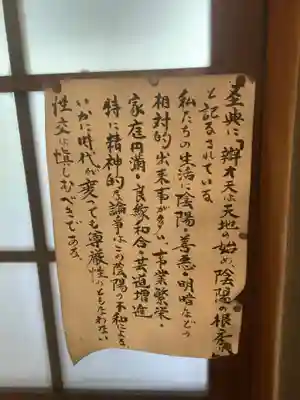 聖典に「辯才天は天地の始め、陰陽の根元」
と記るされている。
私たちの生活に陰陽・善悪・明暗などの
相対的出来事が多い、事業繁栄・
家庭円満・良縁和合・芸道増進
特に精神的な論争はこの陰陽の不和による。
いかに時代が変っても尊厳性のともなわない
性交は慎しむべきである。